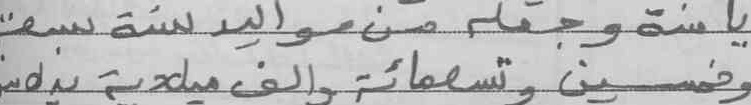 يا سنة وجعله من مواليد سنة سبعة
وخمسين وتسعمائة والف ميلادية بدلا من